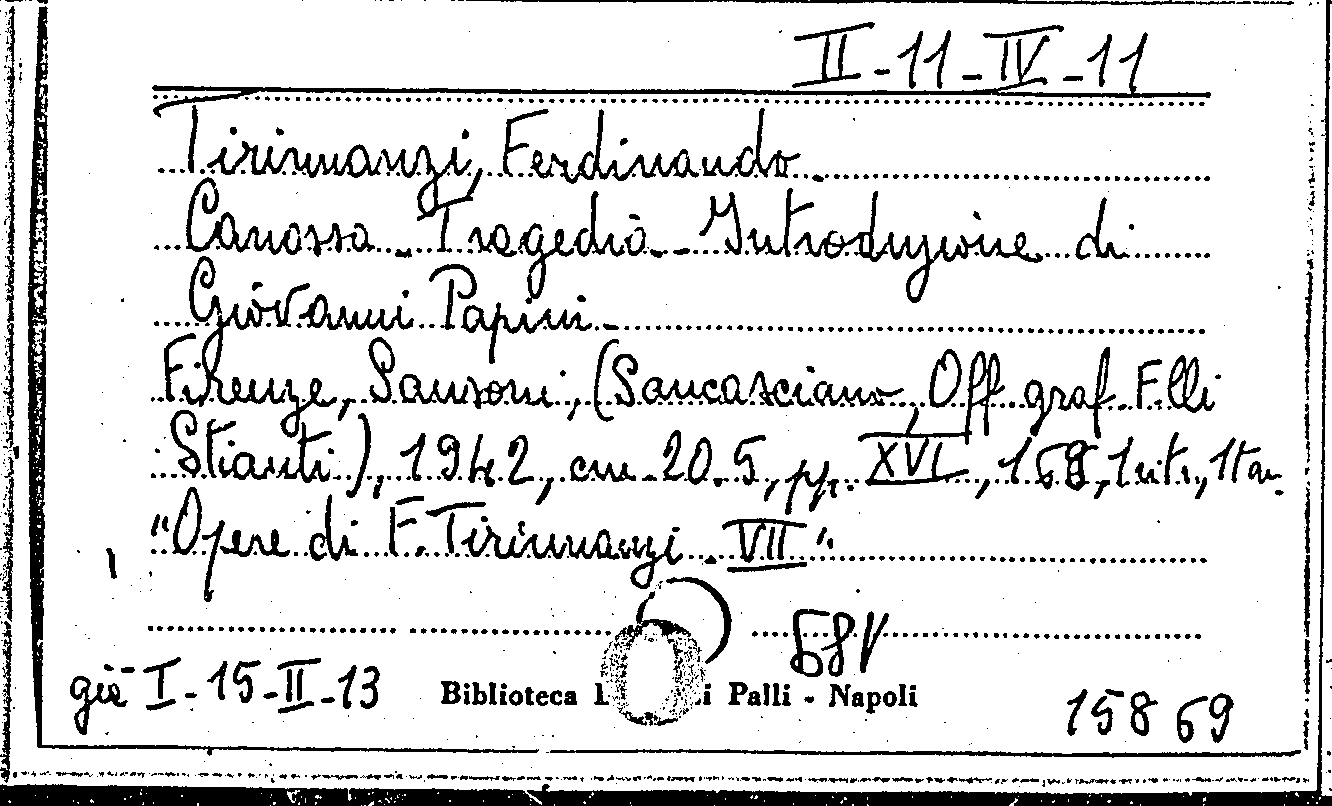 II-11-IV-11
Tirinnanzi, Ferdinando.
Canossa - Tragedia - Introduzione di
Giovanni Papini -
Firenze, Sansoni, (Sancasciano, Off. graf. F.lli
Stianti), 1942, cm. 20.5, pp. XVI, 158, 1 rit., 1 tav.
"Opere di F. Tirinnanzi - VII"
già I-15-II-13
Biblioteca i Palli - Napoli
15869